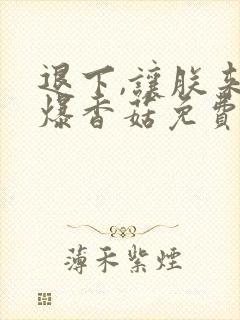 退下,讓朕來
爆香菇免費
薄禾紫煙